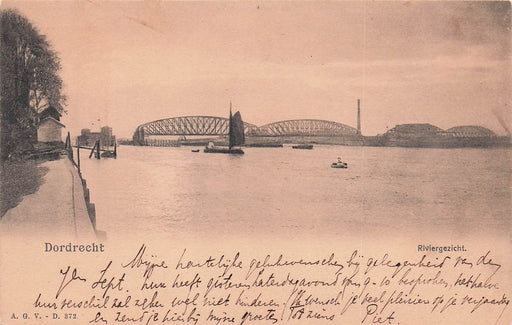 Dordrecht
Riviergezicht.
Mijne hartelijke gelukwenschen bij gelegenheid van den
7en Sept. mijn heeft gisteren Zaterdagavond van 9-10 besproken, het halve
uur verschil zal zeker wel niet hinderen. Ik wensch je veel pleizier op je verjaardag
en zend je hierbij mijne groeten. Tot ziens Piet.
A. G. V. - D. 372.